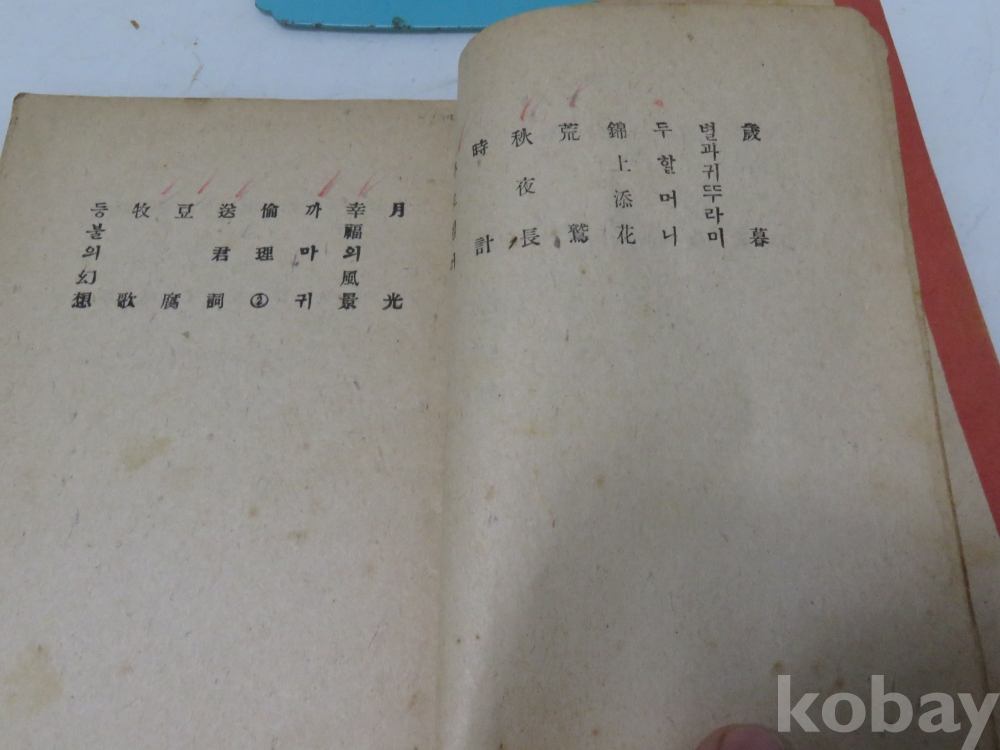 歲暮
별과귀뚜라미
두할머니
錦上添花
荒鷲
秋夜長
時計
月光
幸福의風景
까마귀
倫理②
送君詞
豆腐
牧歌
등불의幻想
kobay